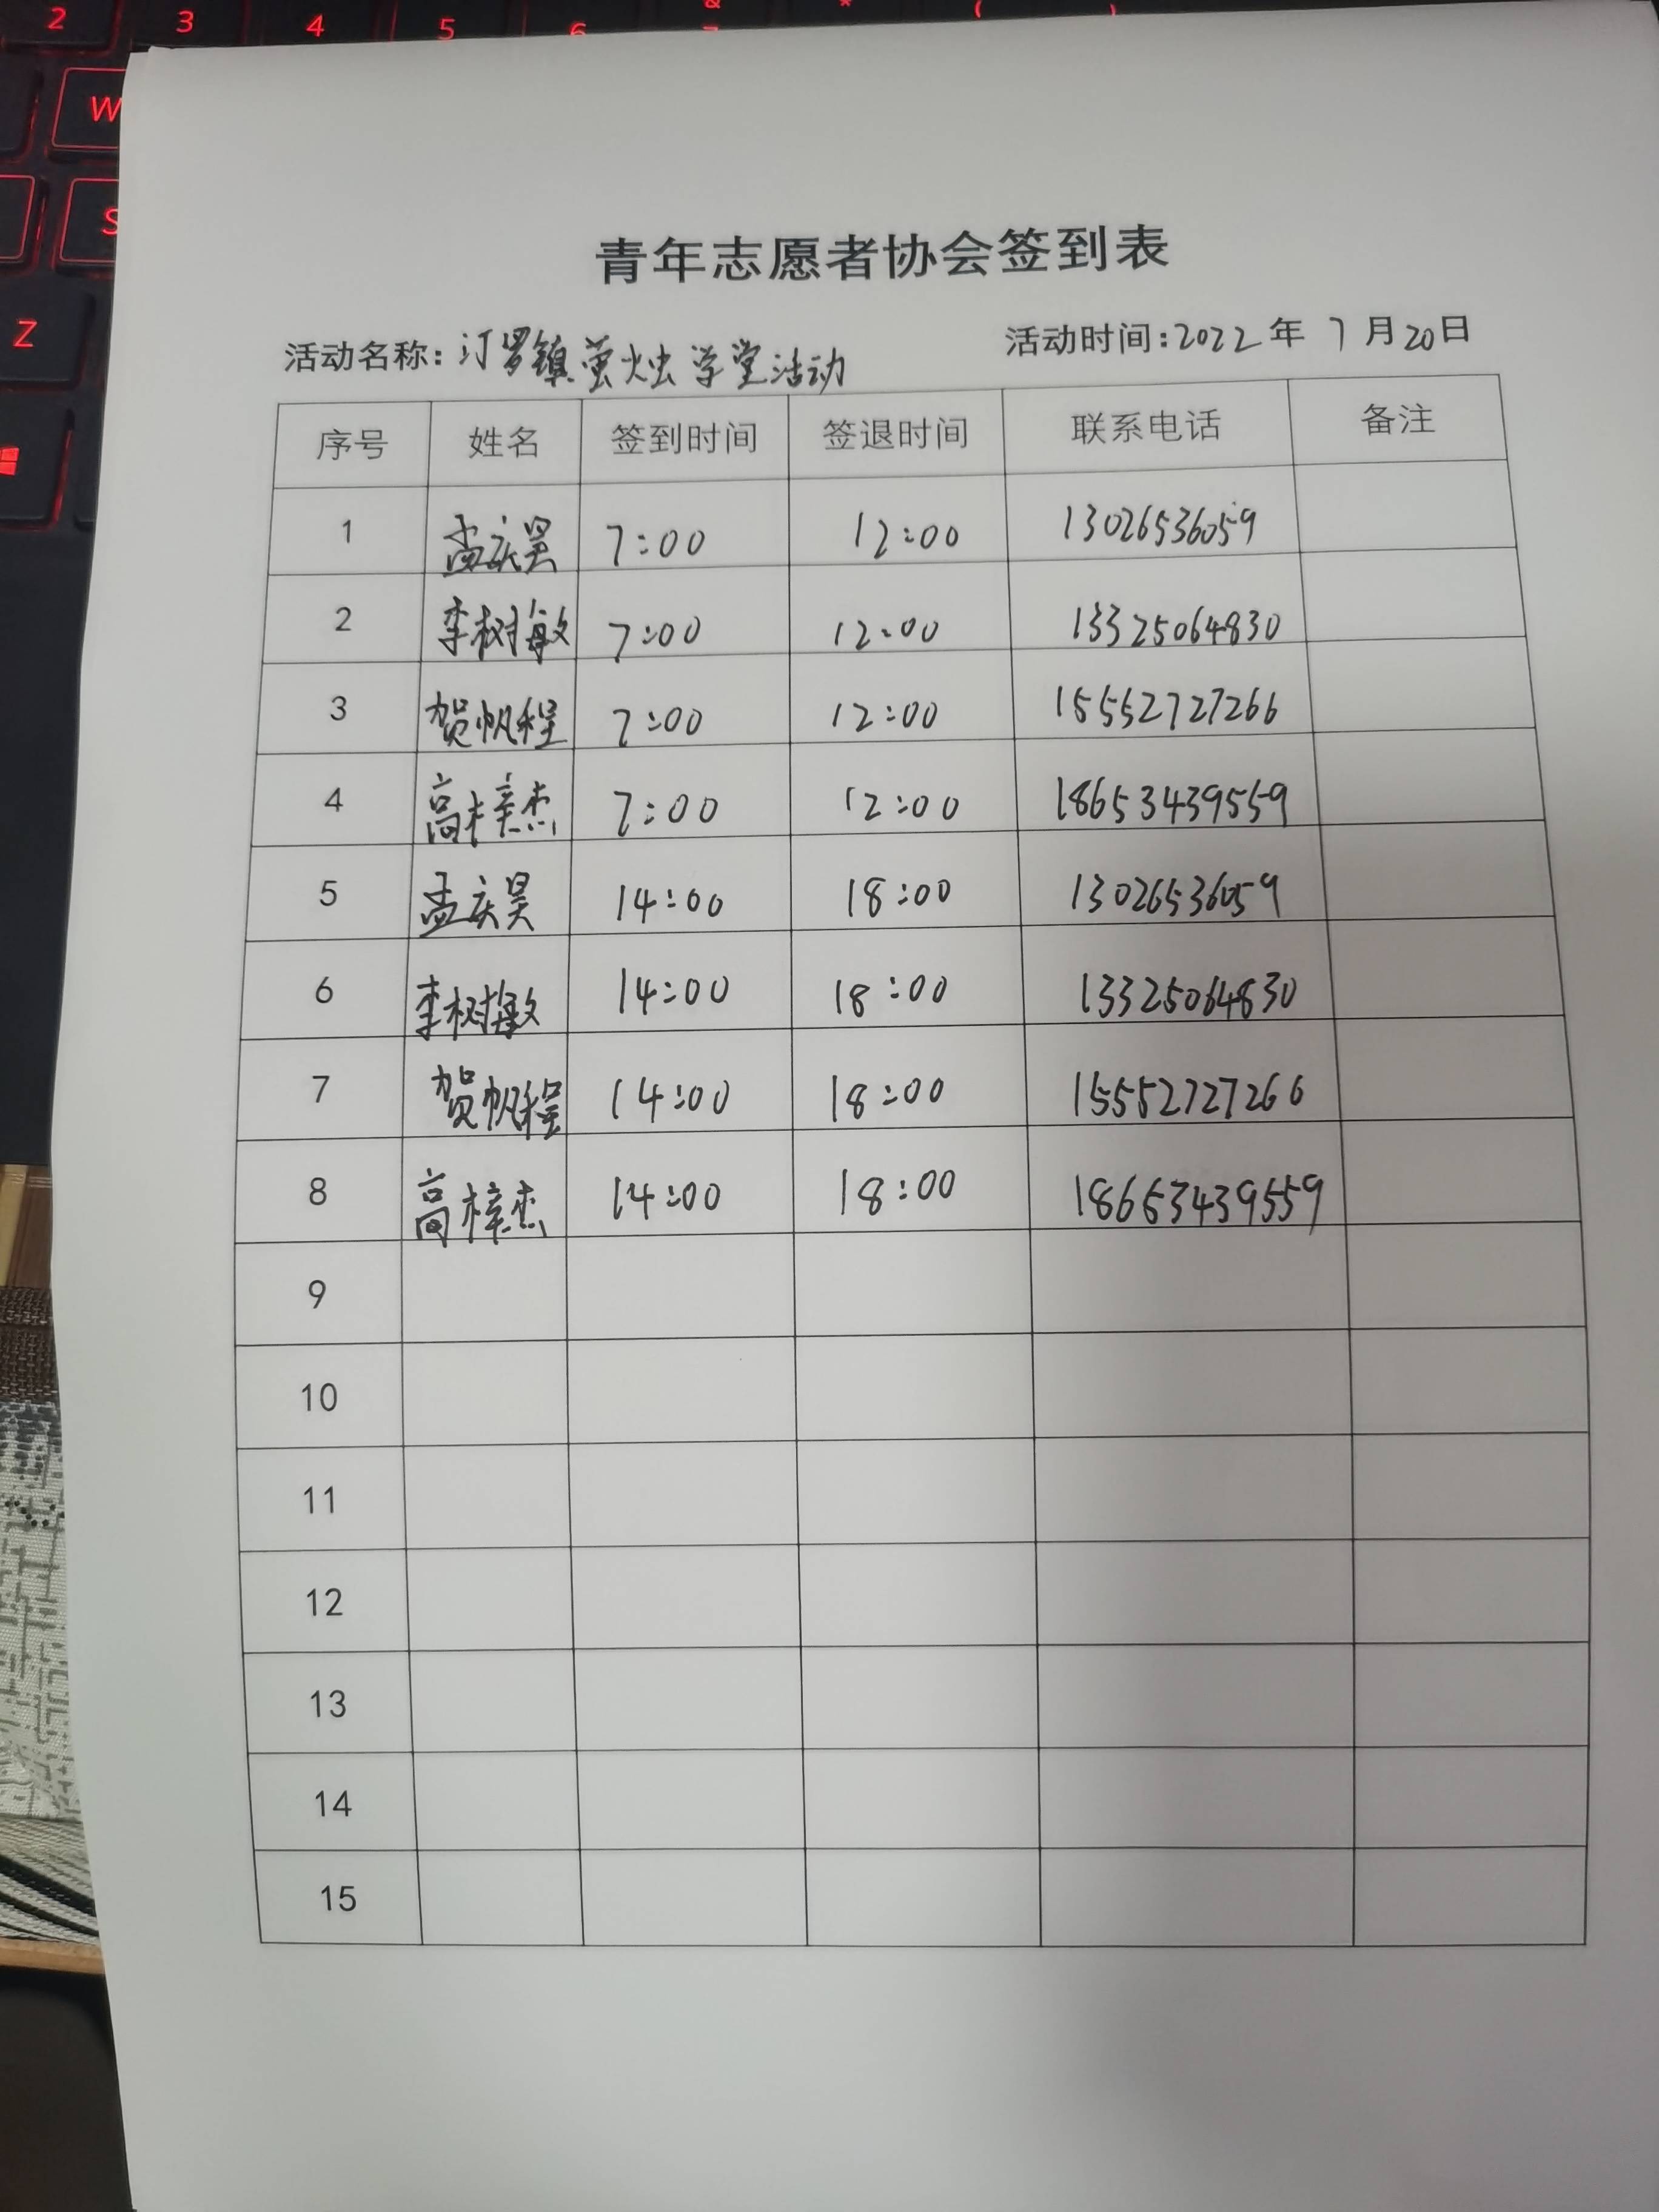 2 3 4 5 6
W
S
Z
青年志愿者协会签到表
活动名称:汀罗镇萤火虫学堂活动 活动时间:2022年 7月20日
序号 姓名 签到时间 签退时间 联系电话 备注
1 孟庆昊 7:00 12:00 13026536059
2 李树敏 7:00 12:00 13325064830
3 贺帆程 7:00 12:00 15552727266
4 高梓杰 7:00 12:00 18653439559
5 孟庆昊 14:00 18:00 13026536059
6 李树敏 14:00 18:00 13325064830
7 贺帆程 14:00 18:00 15552727266
8 高梓杰 14:00 18:00 18653439559
9
10
11
12
13
14
15